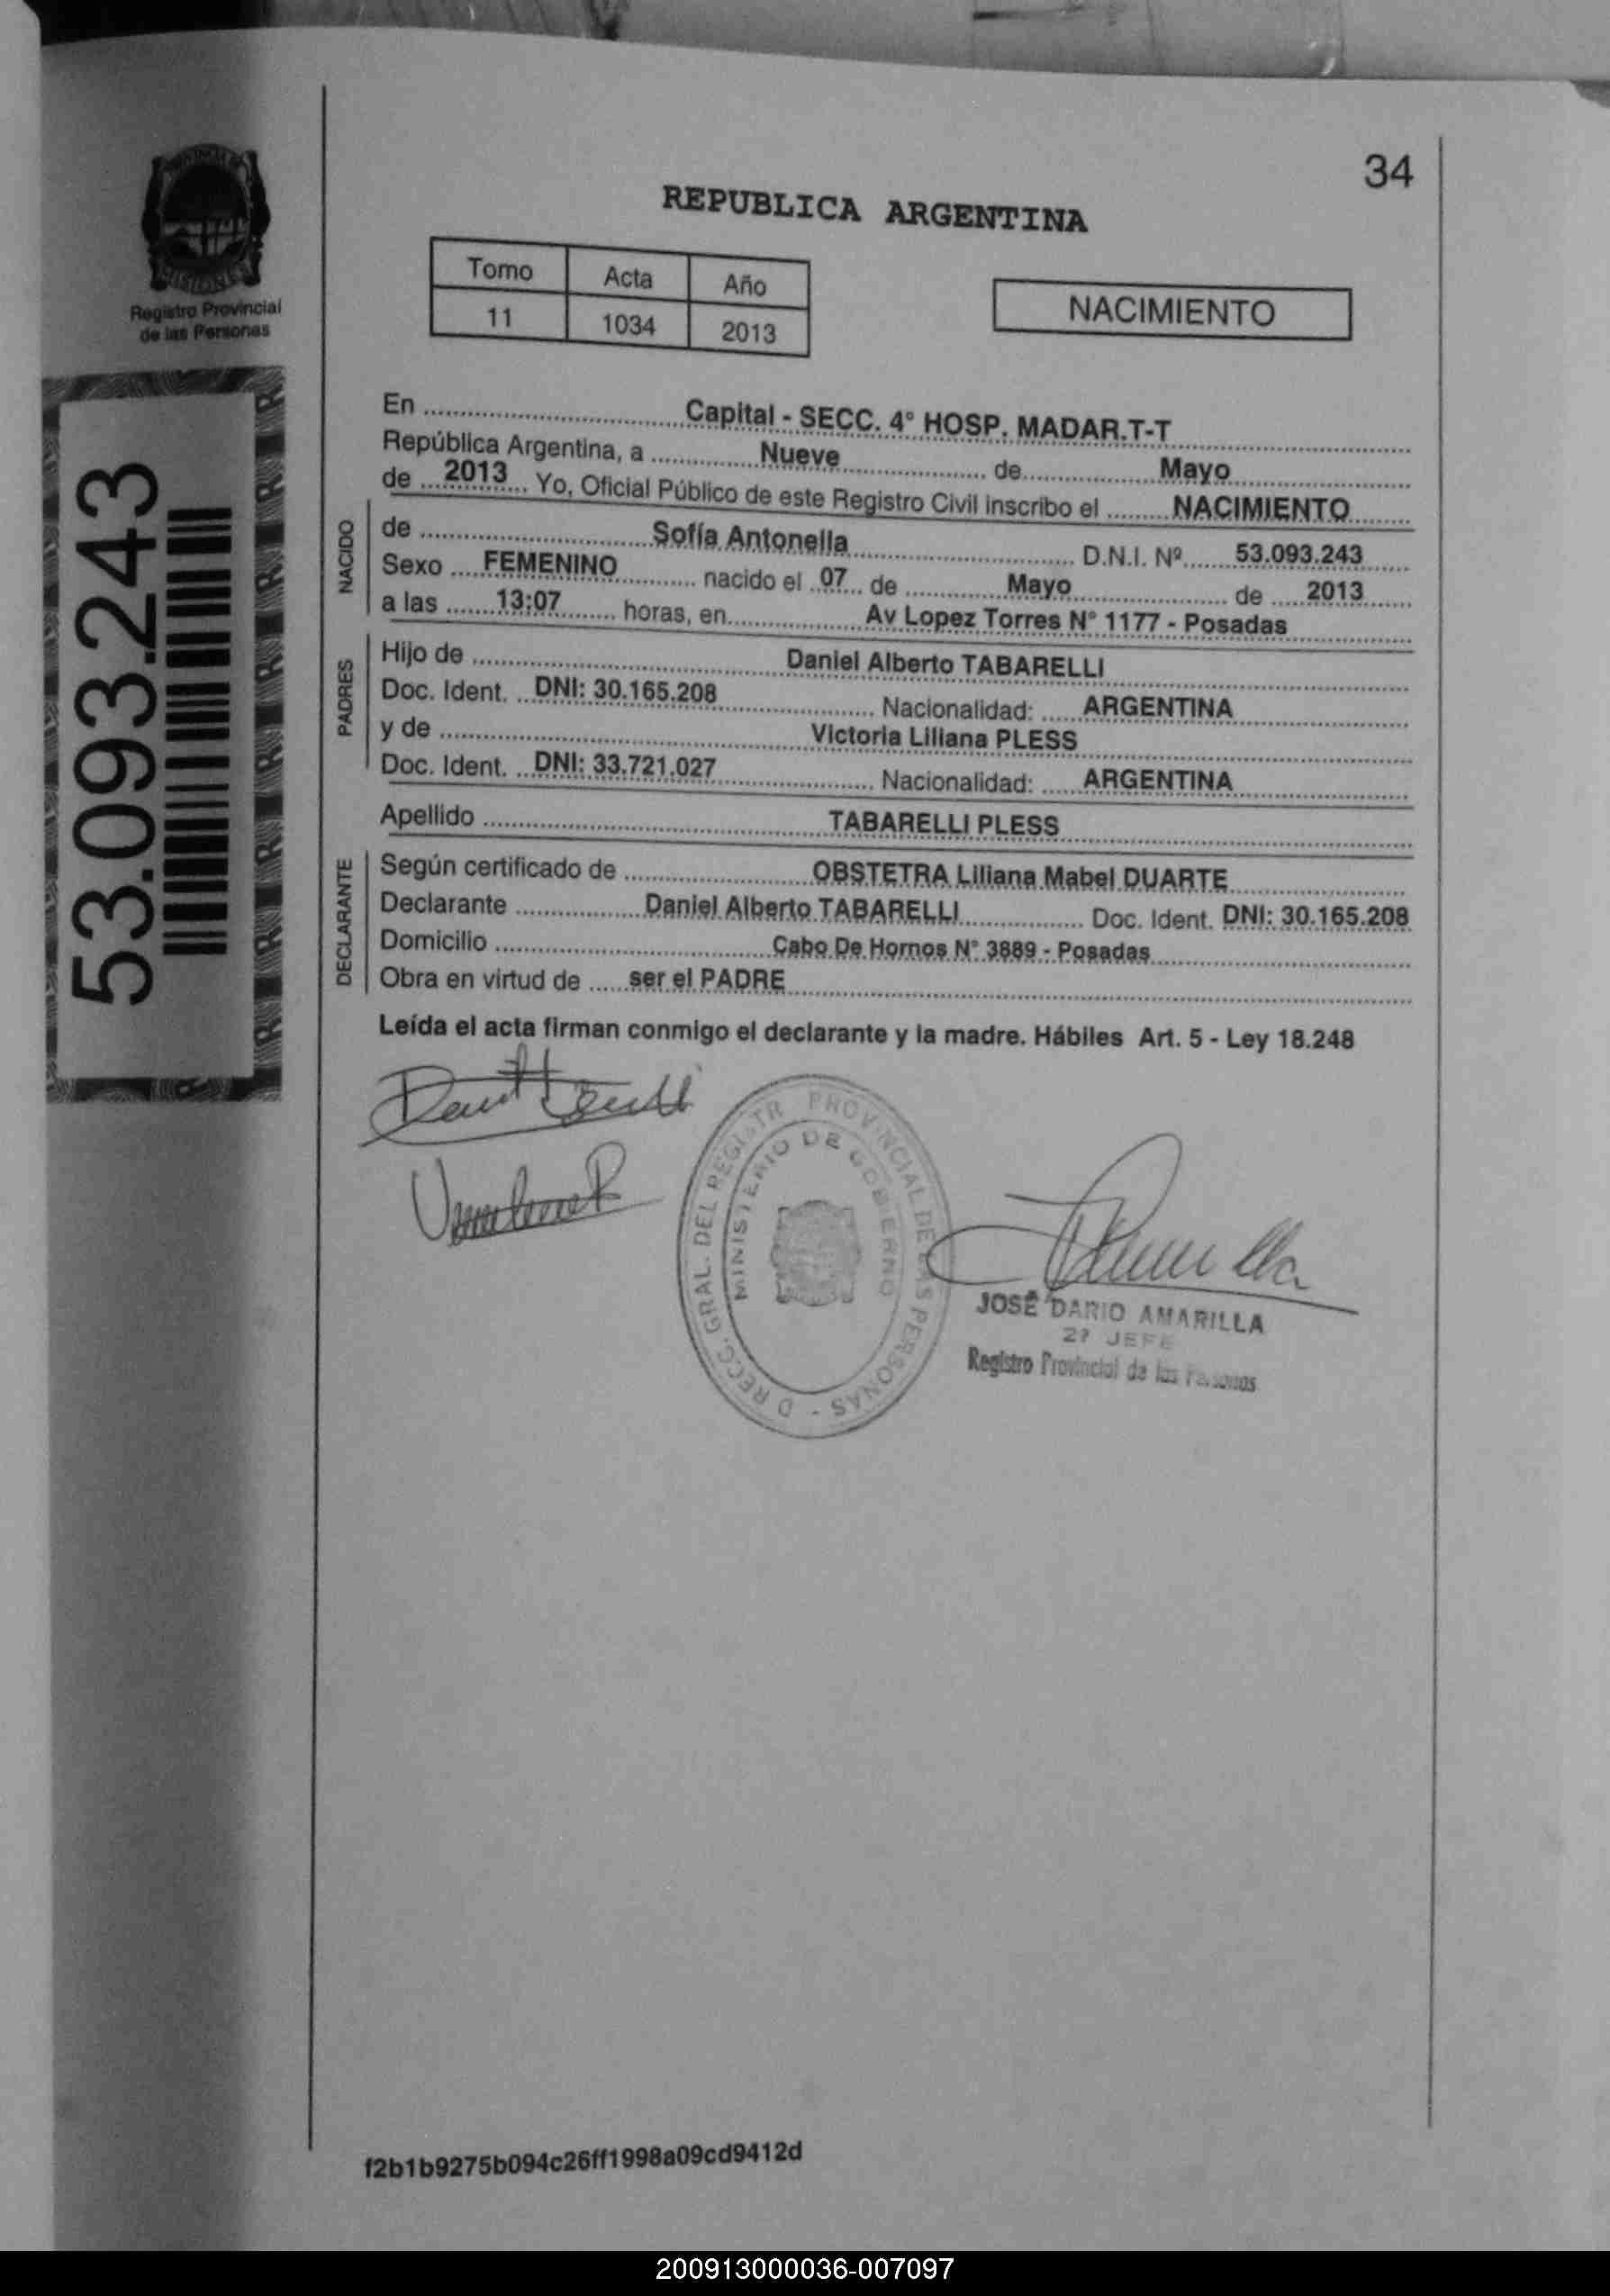 34
PROVINCIA DE
MISIONES
Registro Provincial
de las Personas
53.093.243
REPUBLICA ARGENTINA
Tomo Acta Año
11 1034 2013
NACIMIENTO
En Capital - SECC. 4° HOSP. MADAR.T-T
República Argentina, a Nueve de Mayo
de 2013 Yo, Oficial Público de este Registro Civil inscribo el NACIMIENTO
NACIDO
de Sofía Antonella D.N.I. Nº 53.093.243
Sexo FEMENINO nacido el 07 de Mayo de 2013
a las 13:07 horas, en Av Lopez Torres N° 1177 - Posadas
PADRES
Hijo de Daniel Alberto TABARELLI
Doc. Ident. DNI: 30.165.208 Nacionalidad: ARGENTINA
y de Victoria Liliana PLESS
Doc. Ident. DNI: 33.721.027 Nacionalidad: ARGENTINA
Apellido TABARELLI PLESS
DECLARANTE
Según certificado de OBSTETRA Liliana Mabel DUARTE
Declarante Daniel Alberto TABARELLI Doc. Ident. DNI: 30.165.208
Domicilio Cabo De Hornos N° 3889 - Posadas
Obra en virtud de ser el PADRE
Leída el acta firman conmigo el declarante y la madre. Hábiles Art. 5 - Ley 18.248
GRAL. DEL REGISTR PROVINCIAL DE LAS PERSONAS -
MINISTERIO DE GOBIERNO
JOSÉ DARIO AMARILLA
2º JEFE
Registro Provincial de las Personas
f2b1b9275b094c26ff1998a09cd9412d
200913000036-007097